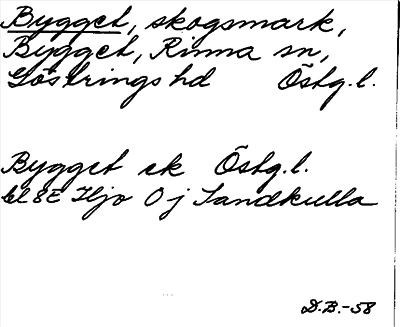 Bygget, skogsmark,
Bygget, Rinna sn,
Göstrings hd Östg.l.
Bygget ek Östg.l.
bl 8E Hjo 0 j Sandkulla
D.B.-58